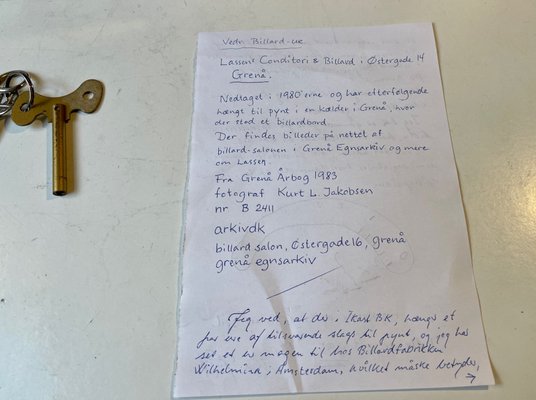 Vedr. Billard-ure
Lassens Conditori & Billard i Østergade 14
Grenå.
Nedlagt i 1980'erne og har efterfølgende
hængt til pynt i en kælder i Grenå, hvor
der stod et billardbord.
Der findes billeder på nettet af
billard-salonen i Grenå Egnsarkiv og mere
om Lassen.
Fra Grenå Årbog 1983
fotograf Kurt L. Jakobsen
nr B 2411
arkivdk
billard salon, Østergade 16, grenå
grenå egnsarkiv
Jeg ved, at der i Ikast BK, hænger et
par ure af tilsvarende slags til pynt, og jeg har
set et ur magen til hos Billardfabrikken
Wilhelmina i Amsterdam, hvilket måske betyder,
→